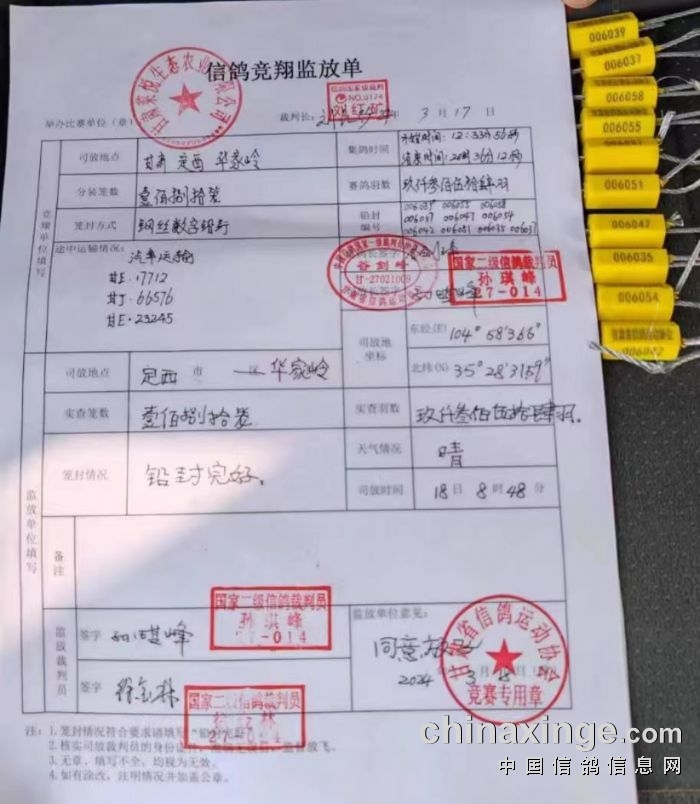 信鸽竞翔监放单
举办比赛单位(章)
裁判长:
3月17日
NO.0174
竞翔单位填写
司放地点 甘肃 定西 华家岭
集鸽时间 开始时间:12:33分56秒
结束时间:20时36分12秒
分装笼数 壹佰捌拾笼
赛鸽羽数 玖仟叁佰伍拾肆羽
笼封方式
铅封编号 006039 006055 006058
006037 006047 006054
006042 006051 006035 006037
途中运输情况:
汽车运输
甘E·17712
甘J·66576
甘E·23245
谷剑峰
甘-27021009
国家二级信鸽裁判员
孙琪峰
27-014
司放地坐标
东经(E) 104°58′366″
北纬(N) 35°28′3159″
监放单位填写
司放地点 定西 市 华家岭
实查笼数 壹佰捌拾笼
实查羽数 玖仟叁佰伍拾肆羽.
笼封情况 铅封完好。
天气情况 晴
司放时间 18日8时48分
备注
监放裁判员
签字 孙琪峰
国家二级信鸽裁判员
孙琪峰
27-014
签字 徐金林
国家二级信鸽裁判员
监放单位意见:
同意
2024 3
甘肃省信鸽运动协会
竞赛专用章
注:1.笼封情况符合要求请填写
2.核实司放裁判员的身份证
3.无章,填写不全,均视为无效。
4.如有涂改,注明情况并加盖公章。
006039
006037
006058
006055
006051
006047
006035
006054
006042
chinaxinge.com
中国信鸽信息网